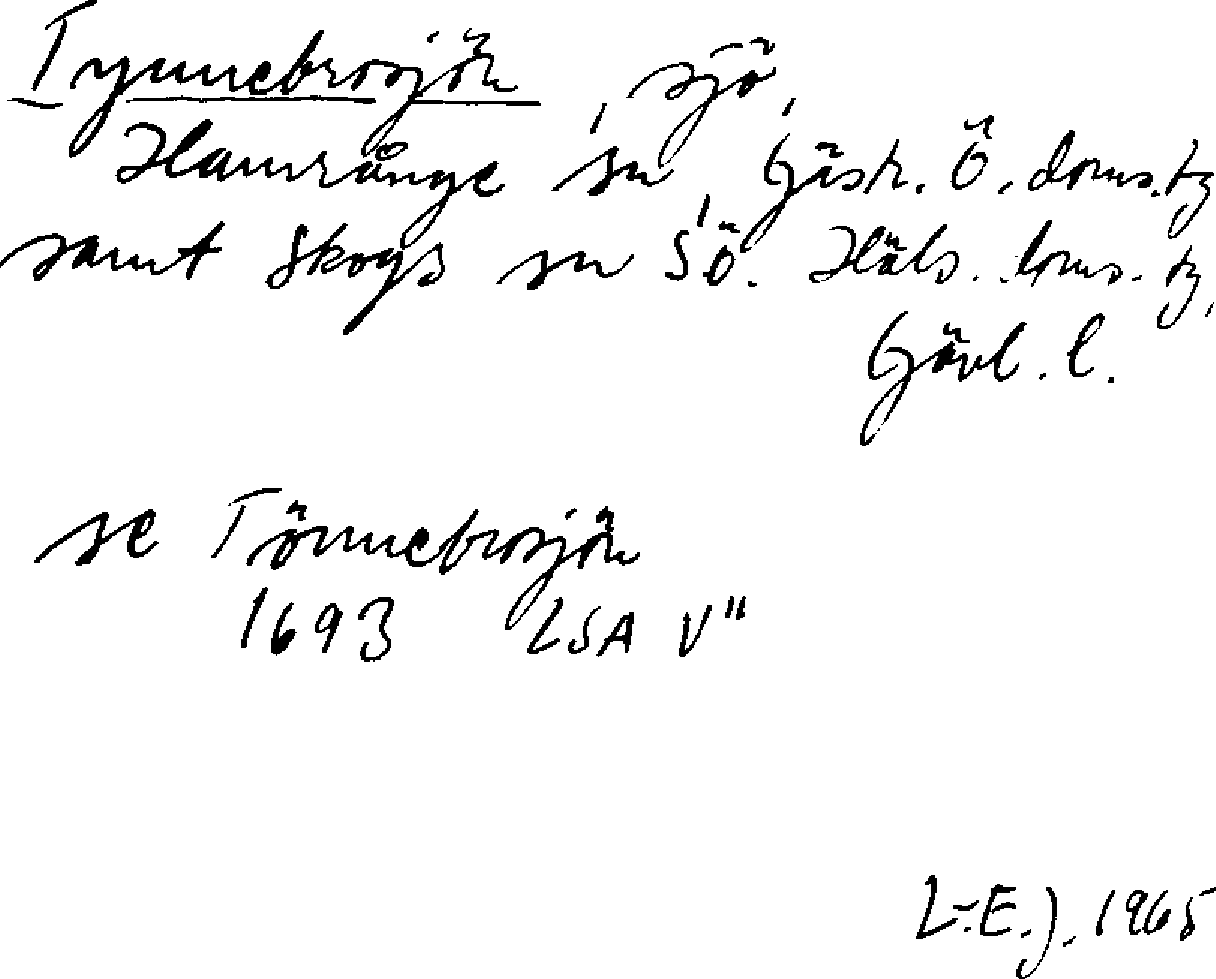 Tynnebrosjön, sjö,
Hamrånge sn, Gästr. Ö. doms.tg
samt Skogs sn SÖ. Häls. doms. tg,
Gävl. l.
se Tönnebrosjön
1693 LSA V"
L-E.J. 1965